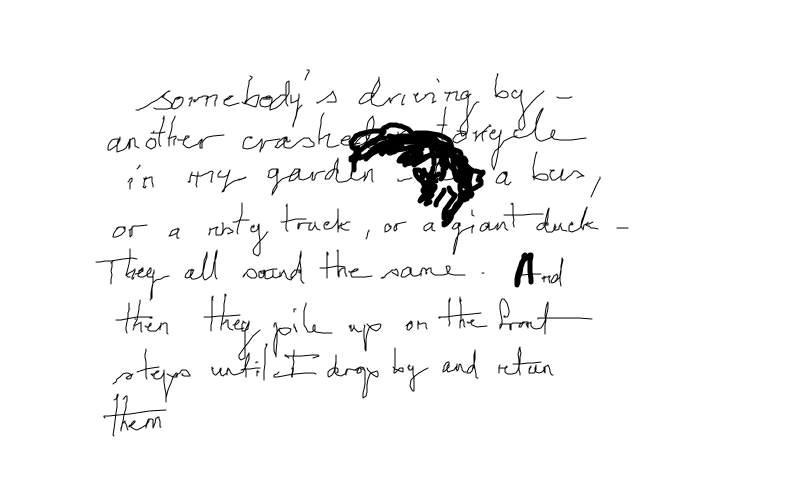 somebody's driving by –
another crashed
in my garden – a bus,
or a rusty truck, or a giant duck –
They all sound the same. And
then they pile up on the front
steps until I drop by and return
them